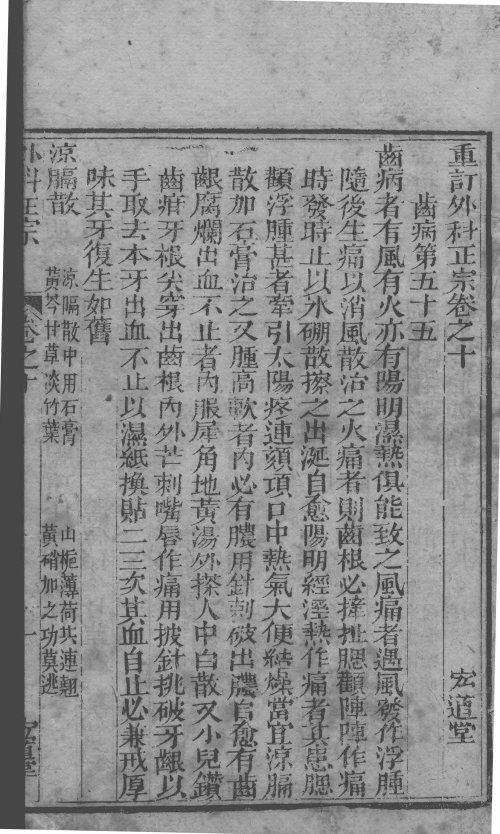 重訂外科正宗卷之十　宏道堂
齒病第五十五
齒病者有風有火亦有陽明濕熱俱能致之風痛者遇風發作浮腫
隨後生痛以消風散治之火痛者則齒根必摧搥腮顴陣陣作痛
時發時止以氷硼散搽之出涎自愈陽明經溼熱作痛者其患腮
顴浮腫甚者牽引太陽疼連頦項口中熱氣大便結燥當宜涼膈
散加石膏治之又腫高軟者內必有膿用針刺破出膿自愈有齒
齦腐爛出血不止者內服犀角地黃湯外搽人中白散又小兒鑽
齒疳牙根尖穿出齒根內外芒刺嘴唇作痛用披針挑破牙齦以
手取去本牙出血不止以濕紙換貼二三次其血自止必兼戒厚
味其牙復生如舊
涼膈散　涼隔散中用石膏　山梔薄荷共連翹
黃芩甘草淡竹葉　黃硝加之功莫逃
外科正宗　卷之十　宏道堂